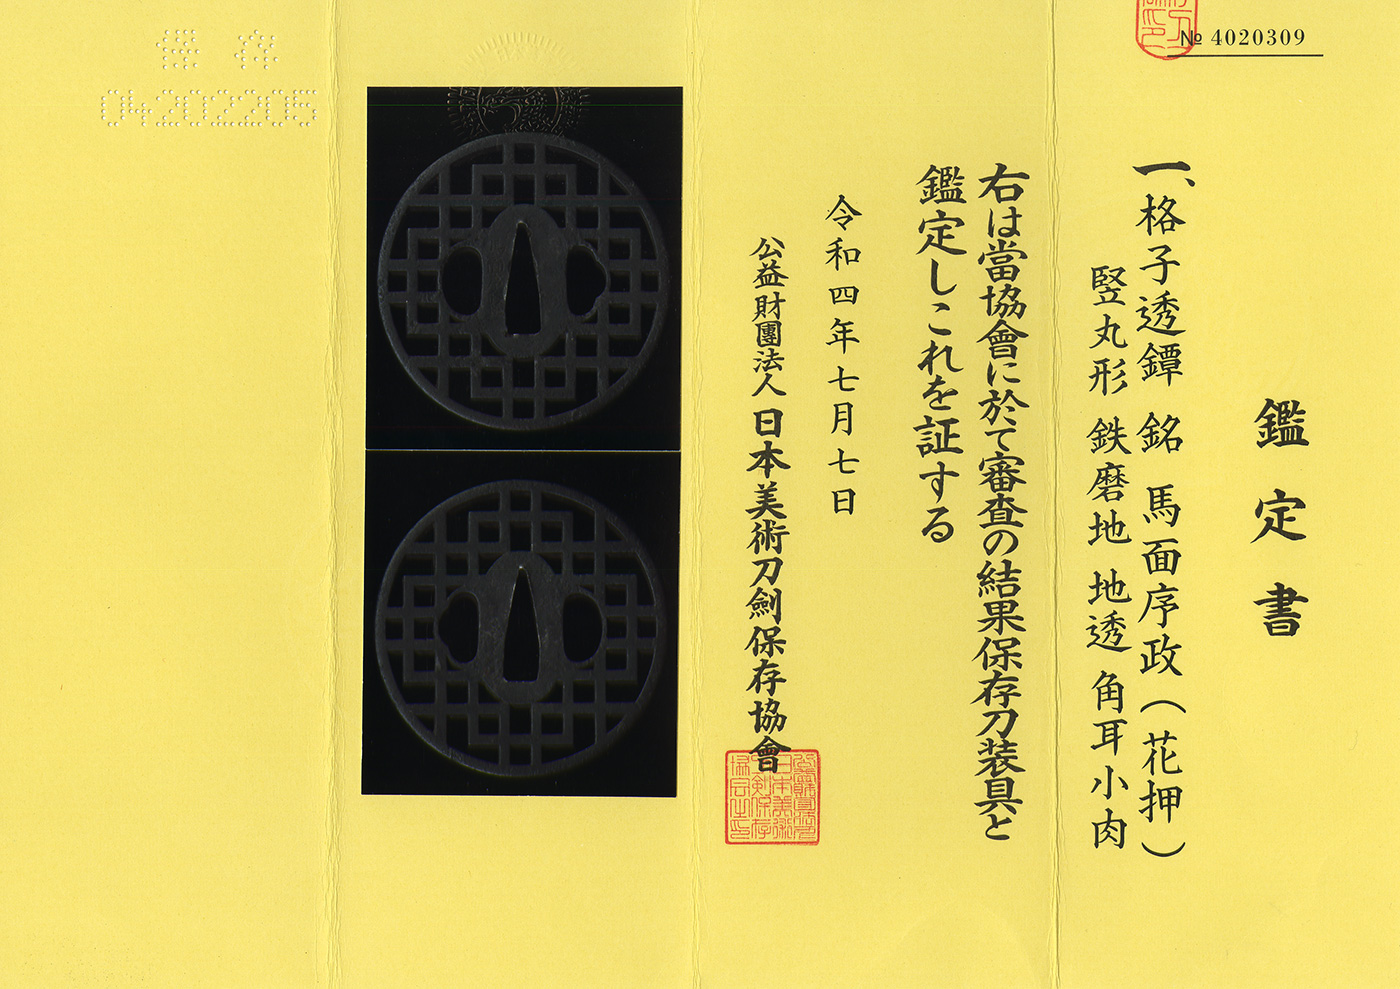 № 4020309
鑑定書
一、格子透鐔 銘 馬面序政（花押）
竪丸形 鉄磨地 地透 角耳小肉
右は當協會に於て審査の結果保存刀装具と
鑑定しこれを証する
令和四年七月七日
公益財團法人 日本美術刀劍保存協會
保存
04202205